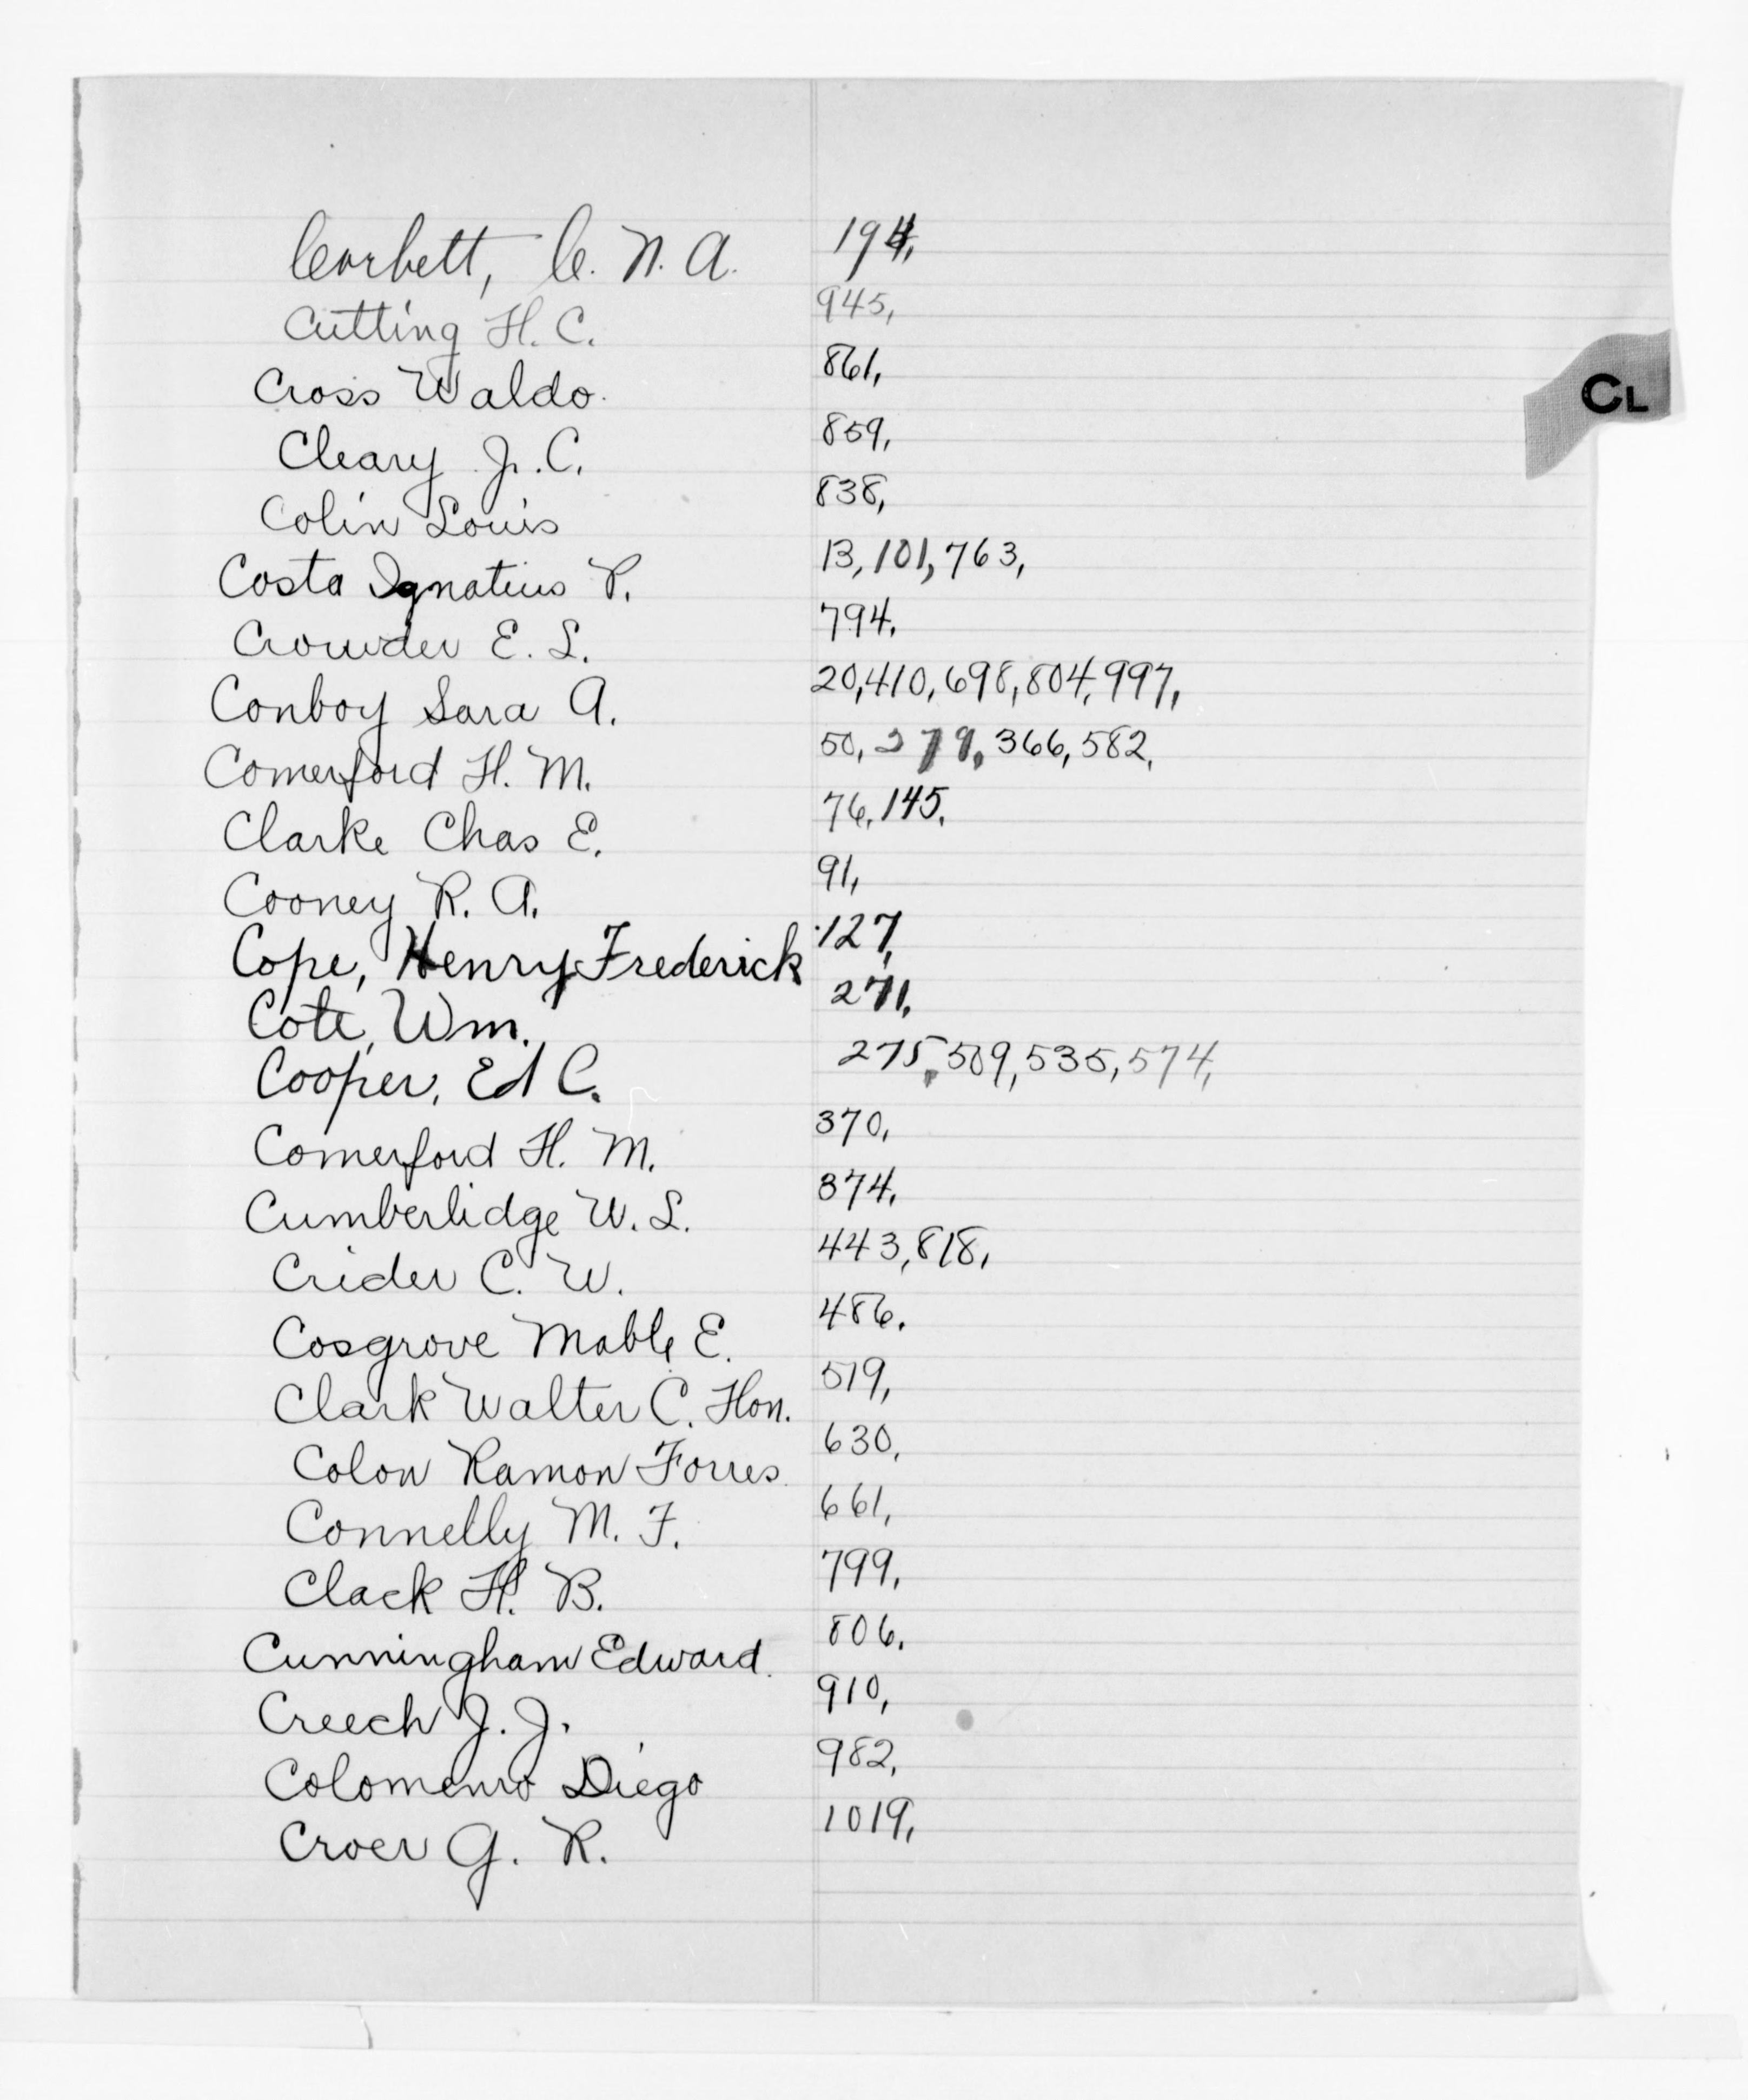 Corbett, C. N. A. 194,
Cutting H. C. 945,
Cross Waldo. 861,
CL
Cleary J. C. 859,
Colin Louis 838,
Costa Ignatius P. 13, 101, 763,
Crowder E. L. 794,
Conboy Sara A. 20, 410, 698, 804, 997,
Comerford H. M. 50, 279, 366, 582,
Clarke Chas E. 76, 145,
Cooney R. A. 91,
Cope, Henry Frederick 127,
Cote, Wm. 271,
Cooper, Ed C. 275, 509, 535, 574,
Comerford H. M. 370,
Cumberlidge W. L. 374,
Crider C. W. 443, 818,
Cosgrove Mable E. 486,
Clark Walter C. Hon. 519,
Colon Ramon Forres 630,
Connelly M. F. 661,
Clack H. B. 799,
Cunningham Edward. 806,
Creech J. J. 910,
Diego 982,
Croer G. R. 1019,